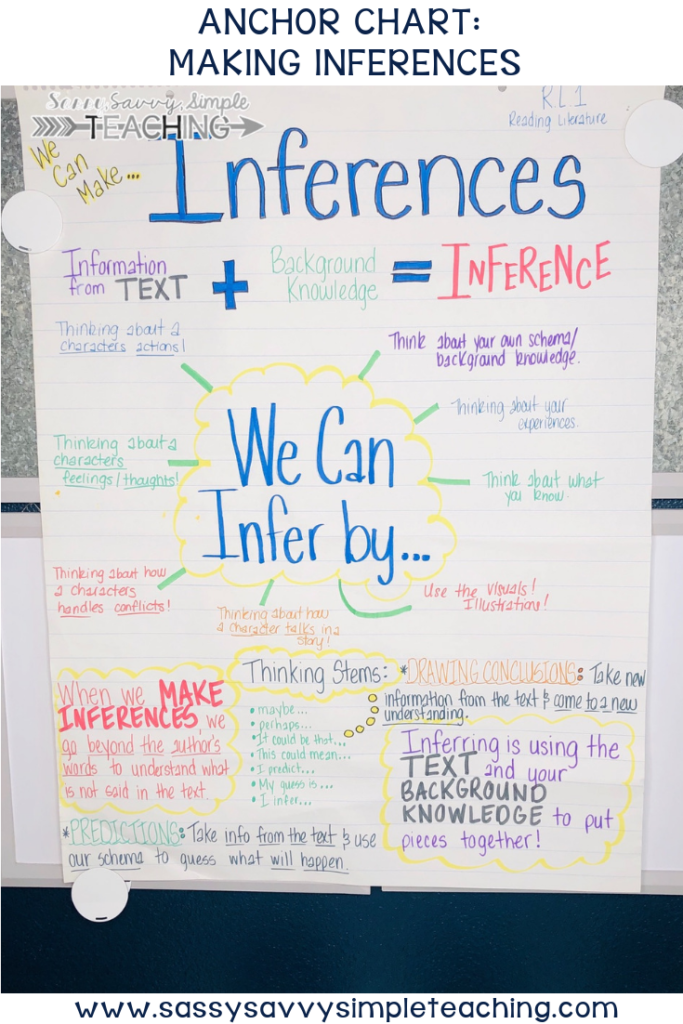 ANCHOR CHART:
MAKING INFERENCES
Sassy, Savvy, Simple
TEACHING
RL1
Reading Literature
We
Can
Make...
Inferences
Information
from TEXT
+
Background
Knowledge
=
INFERENCE
Thinking about a
characters actions!
Think about your own schema/
background knowledge.
Thinking about your
experiences.
Thinking about a
characters
feelings/thoughts!
We Can
Infer by...
Think about what
you know.
Thinking about how
a characters
handles conflicts!
Thinking about how
a character talks in a
story!
Use the visuals!
Illustrations!
When we MAKE
INFERENCES, we
go beyond the author's
words to understand what
is not said in the text.
Thinking Stems:
• maybe...
• perhaps...
• It could be that...
• This could mean...
• I predict...
• My guess is...
• I infer...
*DRAWING CONCLUSIONS: Take new
information from the text & come to a new
understanding.
Inferring is using the
TEXT and your
BACKGROUND
KNOWLEDGE to put
pieces together!
*PREDICTIONS: Take info from the text & use
our schema to guess what will happen.
www.sassysavvysimpleteaching.com